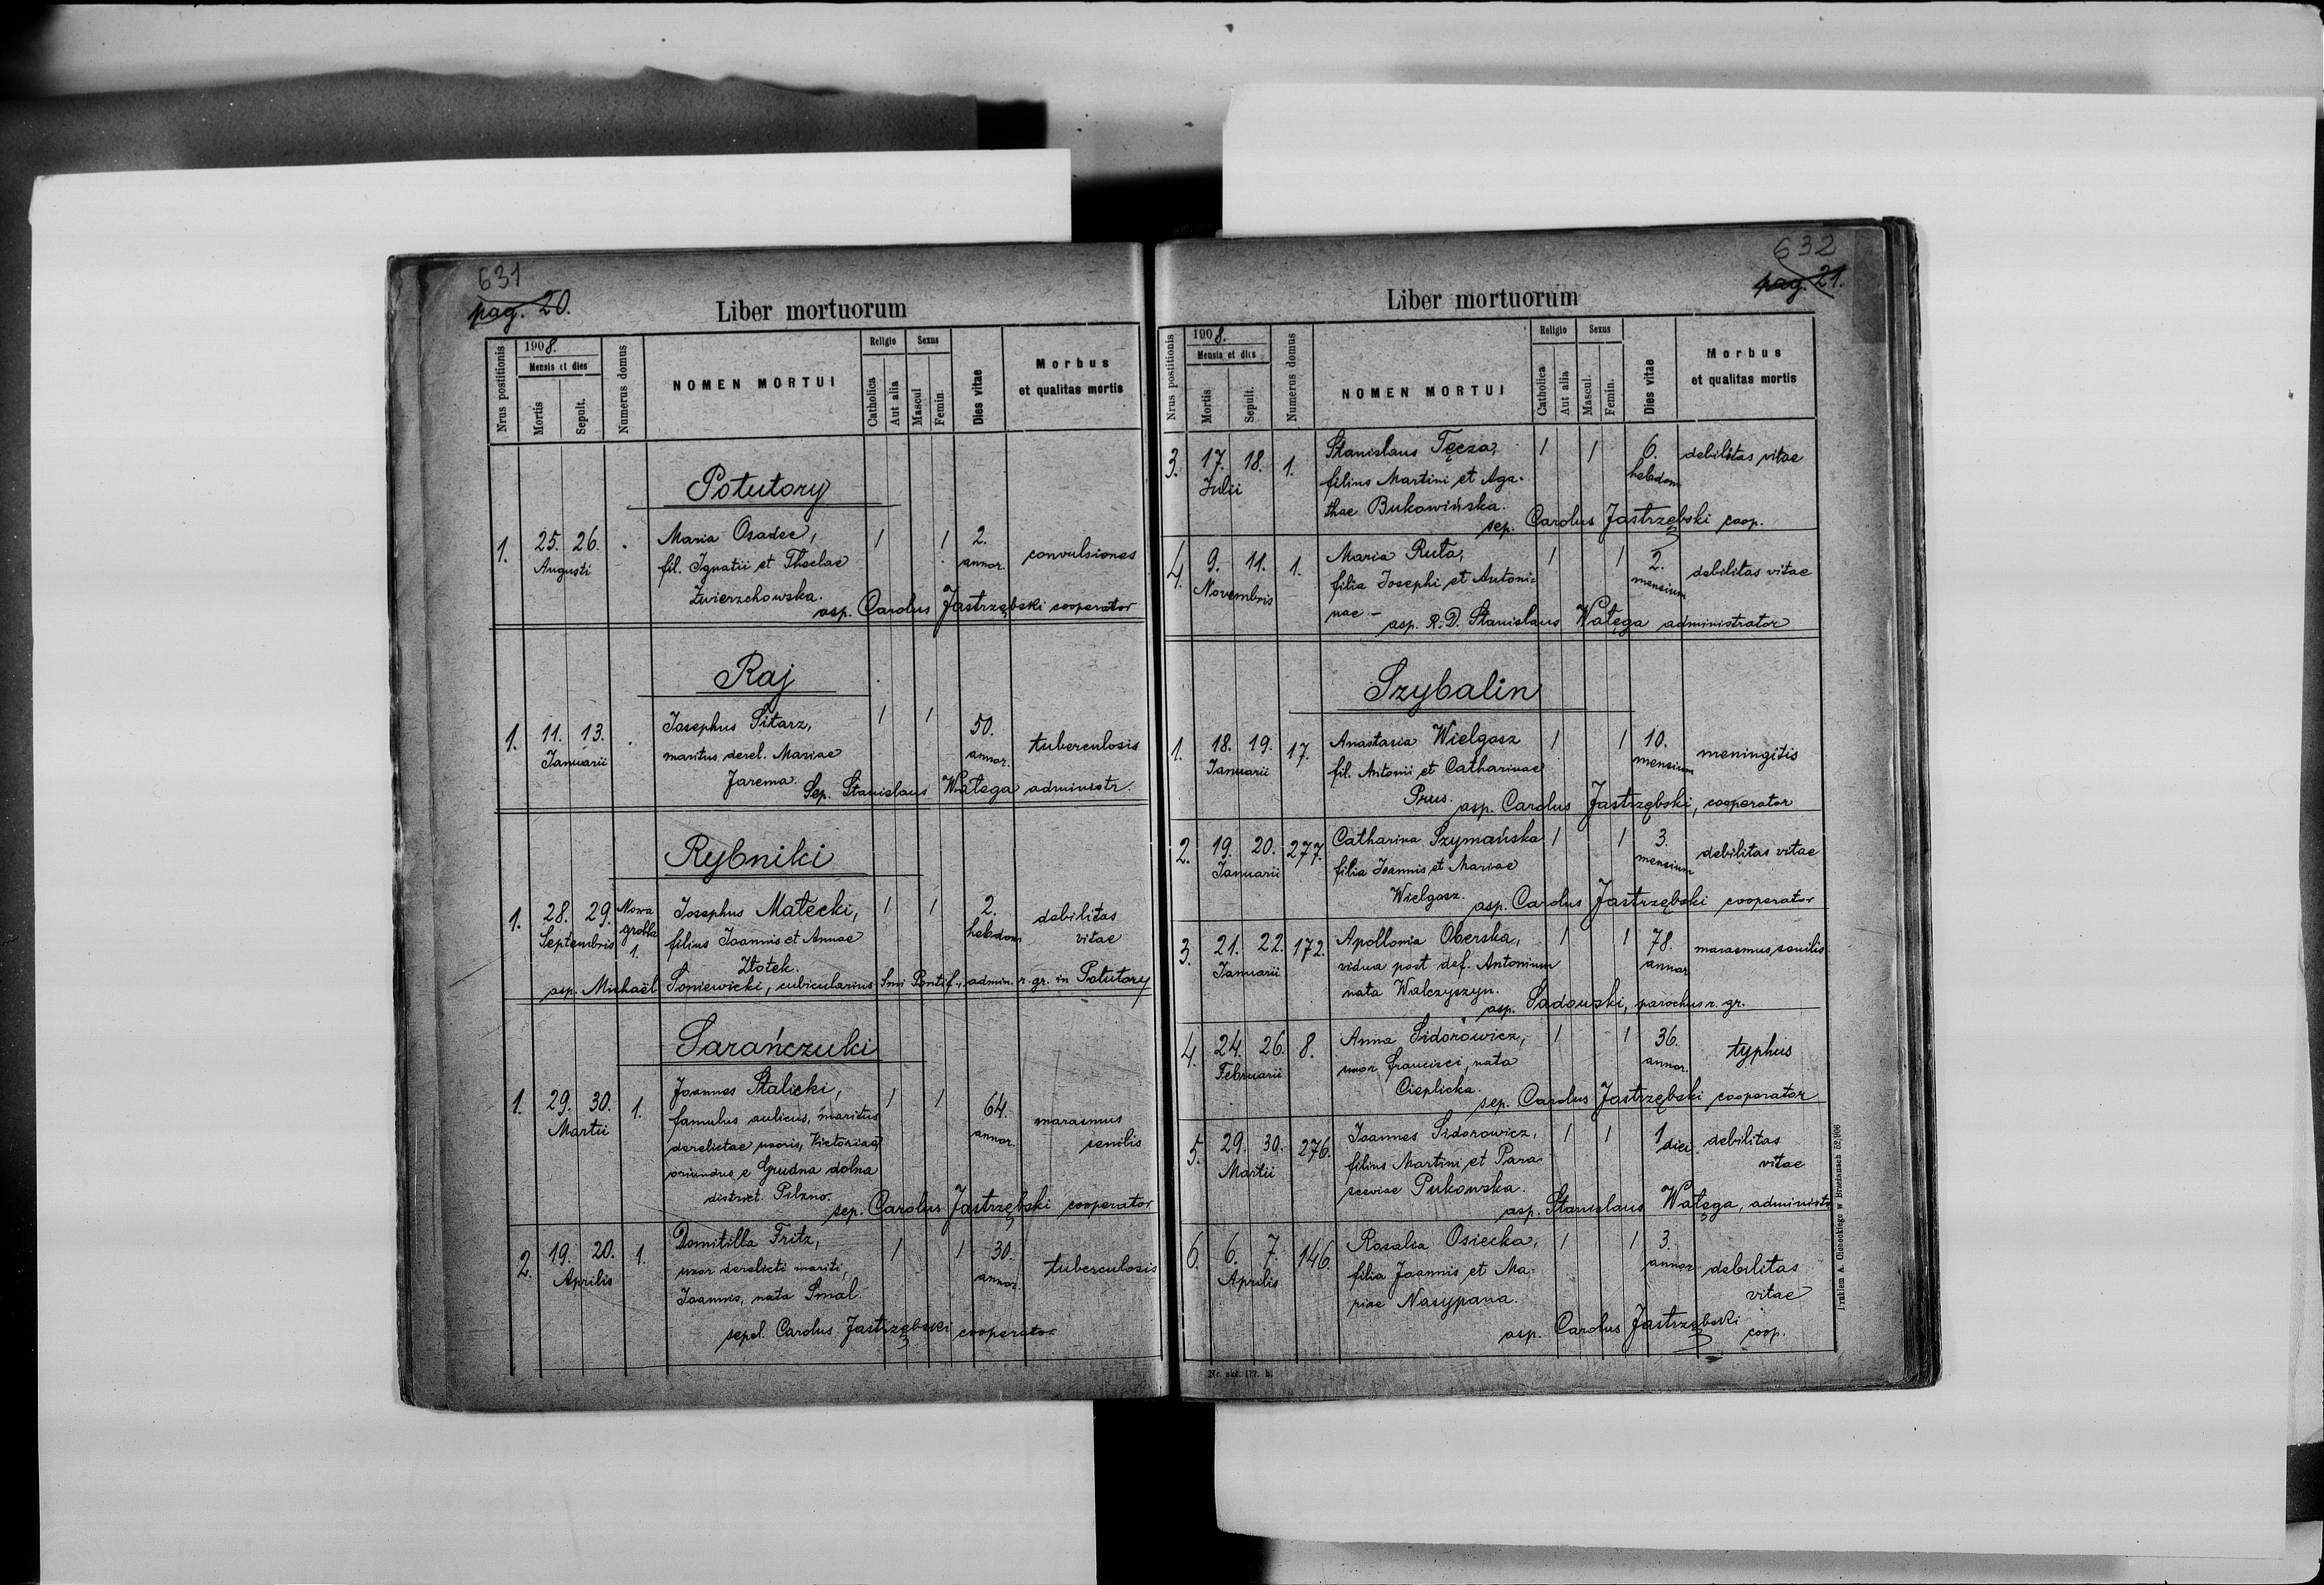 631
pag. 20.
Liber mortuorum
Nrus postitionis
1908.
Mensis et dies
Mortis
Sepult.
Numerus domus
NOMEN MORTUI
Religio
Catholica
Aut alia
Sexus
Mascul
Femin.
Dies vitae
Morbus
et qualitas mortis
Potutory
1. 25. 26. . Maria Osadec, 1 1 2.
Augusti fil. Ignatii et Theclae annor. convulsiones
Zwierzchowska.
asp. Carolus Jastrzębski cooperator
Raj
1. 11. 13. . Josephus Sitarz, 1 1 50.
Januarii maritus derel. Mariae annor. tuberculosis
Jarema. Sep. Stanislaus Wałęga administr.
Rybniki
1. 28. 29. Nowa Josephus Małecki, 1 1 2. debilitas
Septembris grobla filius Joannis et Annae hebdom vitae
1. Złotek.
asp. Michaël Soniewicki, cubicularius Smi Pontif., admin. r. gr. in Potutory
Sarańczuki
1. 29. 30. 1. Joannes Stalicki, 1 1 64.
Martii famulus aulicus, maritus annor. marasmus
derelictae uxoris, Victoriae, senilis
oriundus e Grudna dolna
district. Pilzno.
sep. Carolus Jastrzębski cooperator
2. 19. 20. 1. Domitilla Fritz, 1 1 30.
Aprilis uxor derelicti mariti, annor. tuberculosis
Joannis, nata Smal.
sepel. Carolus Jastrzębski cooperator
632
pag. 21.
Liber mortuorum
Nrus postitionis
1908.
Mensis et dies
Mortis
Sepult.
Numerus domus
NOMEN MORTUI
Religio
Catholica
Aut alia
Sexus
Mascul.
Femin.
Dies vitae
Morbus
et qualitas mortis
3. 17. 18. 1. Stanislaus Tęcza, 1 1 6. debilitas vitae
Julii filius Martini et Aga- hebdom
thae Bukowińska.
sep. Carolus Jastrzębski coop.
4. 9. 11. 1. Maria Ruta, 1 1 2. debilitas vitae
Novembris filia Josephi et Antoni= mensium
nae - asp. R. D. Stanislaus Wałęga administrator
Szybalin
1. 18. 19. 17. Anastasia Wielgosz 1 1 10. meningitis
Januarii fil. Antonii et Catharinae mensium
Prus. asp. Carolus Jastrzębski, cooperator
2. 19. 20. 277. Catharina Szymańska 1 1 3. debilitas vitae
Januarii filia Joannis et Mariae mensium
Wielgosz. asp. Carolus Jastrzębski cooperator
3. 21. 22. 172. Apollonia Oberska, 1 1 78. marasmus senilis
Januarii vidua post def. Antonium annor
nata Walczyszyn.
asp. Sadowski, parochus r. gr.
4. 24. 26. 8. Anna Sidorowicz, 1 1 36. typhus
Februarii uxor Francisci, nata annor.
Cieplicka.
sep. Carolus Jastrzębski cooperator
5. 29. 30. 276. Joannes Sidorowicz, 1 1 1 debilitas
Martii filius Martini et Para- diei vitae
sceviae Pukowska.
asp. Stanislaus Wałęga, administr
6. 6. 7. 146. Rosalia Osiecka, 1 1 3.
Aprilis filia Joannis et Ma- annor debilitas
riae Nasypana. vitae
asp. Carolus Jastrzębski coop.
Drukiem A. Glebockiego w Brzeżanach 52.906
Nr. skł. 177. b.